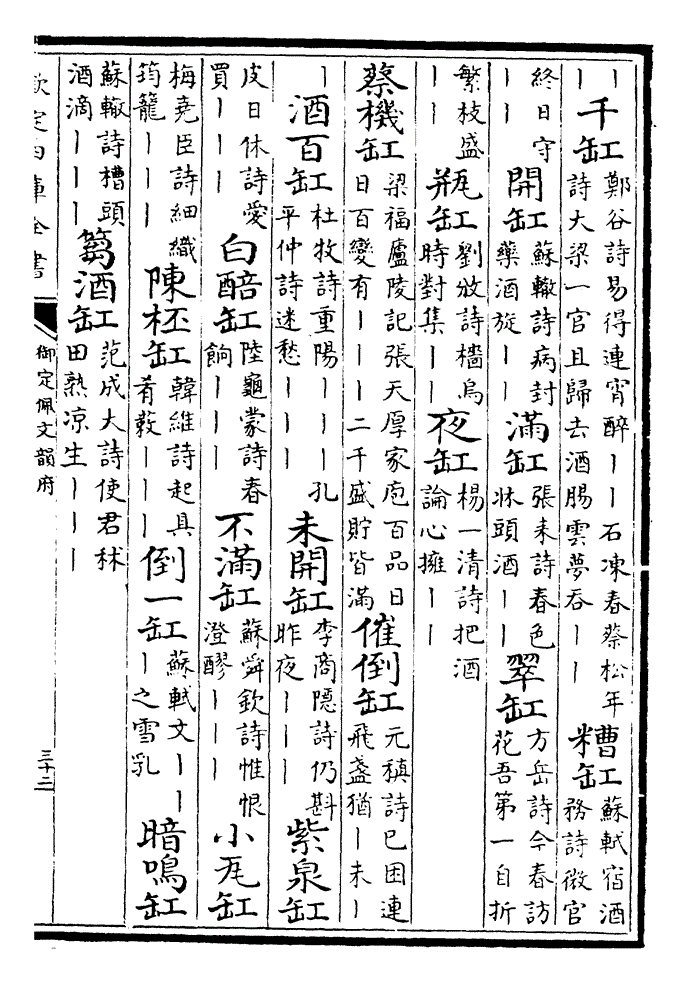 丨丨千缸鄭谷詩易得連宵醉丨丨石凍春蔡松年詩大梁一官且歸去酒腸雲夢吞丨丨糟缸蘇軾宿酒務詩微官
終日守丨丨開缸蘇轍詩病封藥酒旋丨丨滿缸張耒詩春色牀頭酒丨丨翠缸方岳詩今春訪花吾第一自折
繁枝盛丨丨瓶缸劉攽詩檣烏時對集丨丨夜缸楊一清詩把酒論心擁丨丨
蔡機缸梁福廬陵記張天厚家庖百品日日百變有丨丨丨二千盛貯皆滿催倒缸元稹詩已困連飛盞猶丨未丨
丨酒百缸杜牧詩重陽丨丨丨孔平仲詩迷愁丨丨丨未開缸李商隱詩仍斟昨夜丨丨丨紫泉缸
皮日休詩愛買丨丨丨白醅缸陸龜蒙詩春餉丨丨丨不滿缸蘇舜欽詩惟恨澄醪丨丨丨小瓦缸
梅堯臣詩細織筠籠丨丨丨陳柸缸韓維詩起具肴蔌丨丨丨倒一缸蘇軾文丨丨丨之雪乳暗鳴缸
蘇轍詩槽頭酒滴丨丨丨篘酒缸范成大詩使君秫田熟凉生丨丨丨
欽定四庫全書
御定佩文韻府
三十二